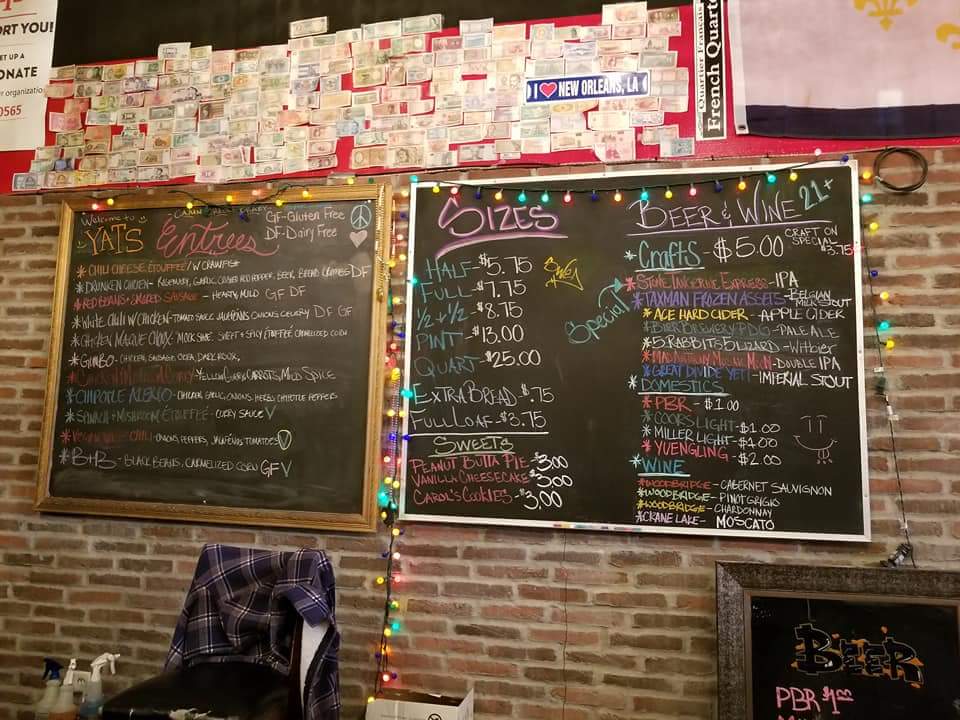 ORT YOU!
ET UP A
ONATE
r organization
0565
I ❤ NEW ORLEANS, LA
Quartier Français
French Quarter
Welcome to
YATS Entrees
GF-Gluten Free
DF-Dairy Free
*CHILI CHEESE ÉTOUFFÉE/W CRAWFISH
*DRUNKEN CHICKEN- ROSEMARY, GARLIC, RED PEPPER, BEER, BREAD CRUMBS DF
*RED BEANS + SMOKED SAUSAGE - HEARTY, MILD GF DF
*WHITE CHILI W CHICKEN- TOMATO SAUCE JALAPEÑOS ONIONS CELERY DF GF
*CHICKEN MAQUE CHOUX- SWEET + SPICY ÉTOUFFÉE CARAMELIZED CORN
*GUMBO- CHICKEN, SAUSAGE, OKRA, DARK ROUX,
- YELLOW CURRY CARROTS, MILD SPICE
*CHIPOTLE ALFREDO- CHICKEN, GARLIC, ONIONS, HERBS CHIPOTLE PEPPERS
*SPINACH + MUSHROOM ÉTOUFFÉE- CURRY SAUCE V
*VEGAN CHILI- ONIONS, PEPPERS, JALAPEÑOS TOMATOES V
*B+B- BLACK BEANS, CARAMELIZED CORN GF V
SIZES
HALF-$5.75
FULL-$7.75
½+½-$8.75
PINT-$13.00
QUART-$25.00
EXTRA BREAD-$.75
FULL LOAF-$3.75
SWEETS
PEANUT BUTTA PIE-$3.00
VANILLA CHEESECAKE-$3.00
CAROL'S COOKIES-$3.00
BEER & WINE 21+
CRAFTS-$5.00
CRAFT ON
SPECIAL
$3.75
Special
*STONE TANGERINE EXPRESS-IPA
*TAXMAN FROZEN ASSETS-BELGIAN MILK STOUT
*ACE HARD CIDER-APPLE CIDER
*BIER BREWERY PDG-PALE ALE
*5 RABBIT 5 LIZARD-WITBIER
*MAD ANTHONY MOSAIC MOON-DOUBLE IPA
*GREAT DIVIDE YETI-IMPERIAL STOUT
*DOMESTICS
*PBR-$1.00
*COORS LIGHT-$1.00
*MILLER LIGHT-$1.00
*YUENGLING-$2.00
*WINE
*WOODBRIDGE-CABERNET SAUVIGNON
*WOODBRIDGE-PINOT GRIGIO
*WOODBRIDGE-CHARDONNAY
*CRANE LAKE- MOSCATO
BEER
PBR $1.00